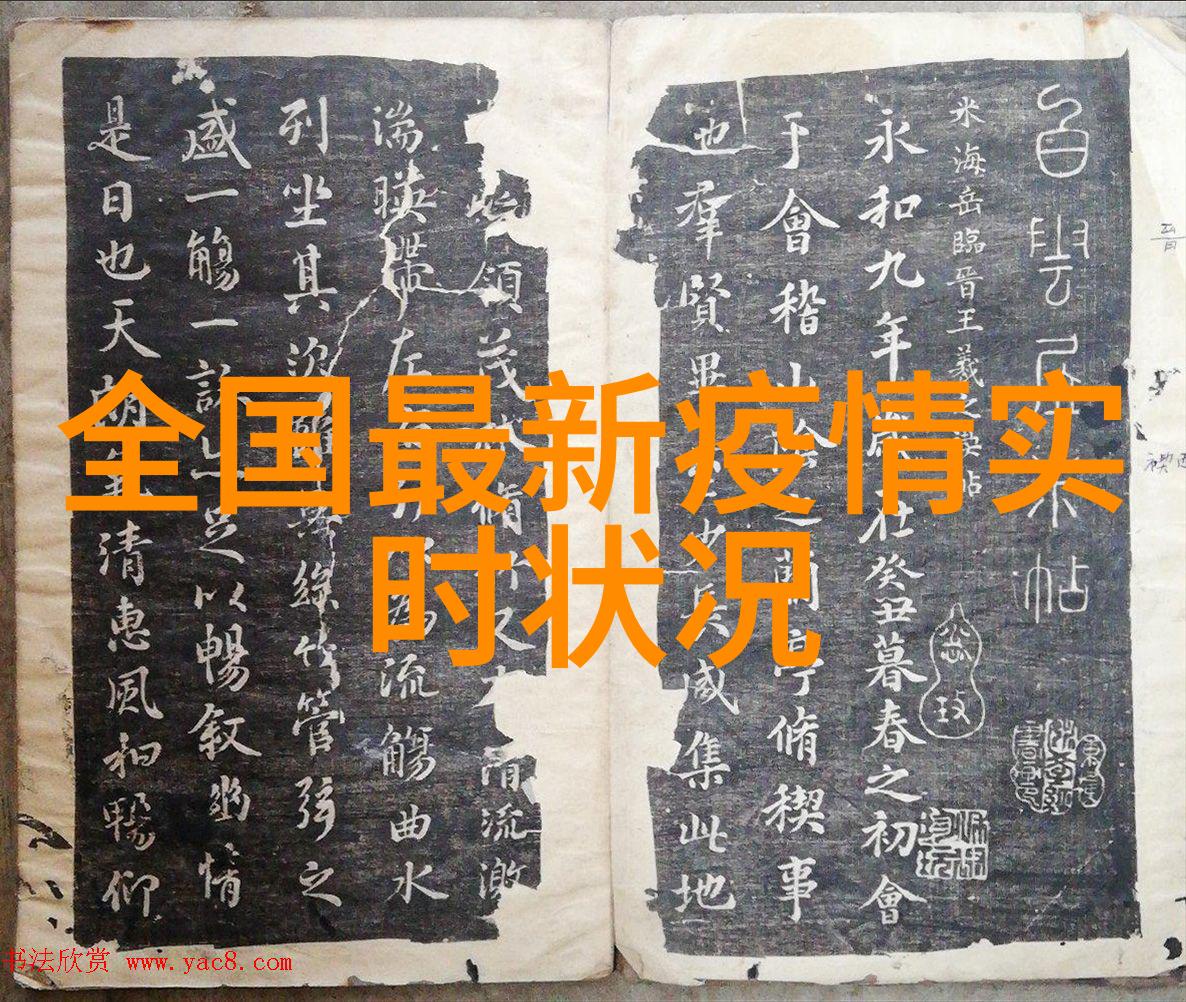 全国最新疫情实
时状况
白雲居米帖
米海岳臨晉王羲之帖
永和九年歲在癸丑暮春之初會
于會稽山陰之蘭亭脩稧事
也羣賢畢至少長咸集此地
領茂林脩竹又有清流激
湍暎帶左右引以為流觴曲水
列坐其次雖無絲竹管弦之
盛一觴一詠亦足以暢叙幽情
是日也天朗氣清惠風和暢仰
书法欣赏 www.yac8.com